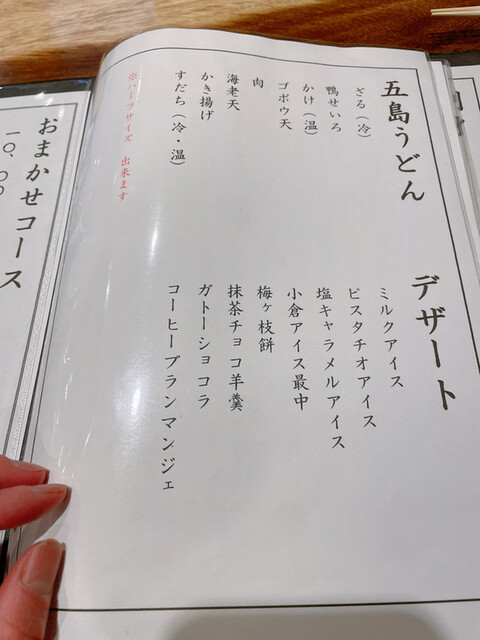 五島うどん
ざる（冷）
鴨せいろ
かけ（温）
ゴボウ天
肉
海老天
かき揚げ
すだち（冷・温）
※ハーフサイズ 出来ます
デザート
ミルクアイス
ピスタチオアイス
塩キャラメルアイス
小倉アイス最中
梅ヶ枝餅
抹茶チョコ羊羹
ガトーショコラ
コーヒーブランマンジェ
おまかせコース